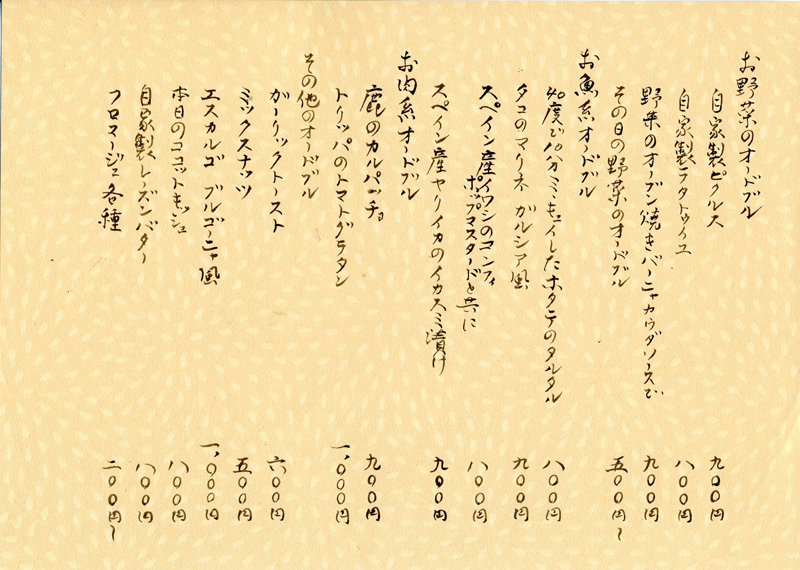 お野菜のオードブル
自家製ピクルス 九〇〇円
自家製ラタトゥイユ 八〇〇円
野菜のオーブン焼きバーニャカウダソースで 九〇〇円
その日の野菜のオードブル 五〇〇円〜
お魚系オードブル
40度で10分ミキュイしたホタテのタルタル 八〇〇円
タコのマリネ ガルシア風 九〇〇円
スペイン産イワシのコンフィ
ポップマスタードと共に 八〇〇円
スペイン産ヤリイカのイカスミ漬け 九〇〇円
お肉系オードブル
鹿のカルパッチョ 九〇〇円
トリッパのトマトグラタン 一、〇〇〇円
その他のオードブル
ガーリックトースト 六〇〇円
ミックスナッツ 五〇〇円
エスカルゴ ブルゴーニャ風 一、〇〇〇円
本日のココットキッシュ 八〇〇円
自家製レーズンバター 八〇〇円
フロマージュ各種 二〇〇円〜